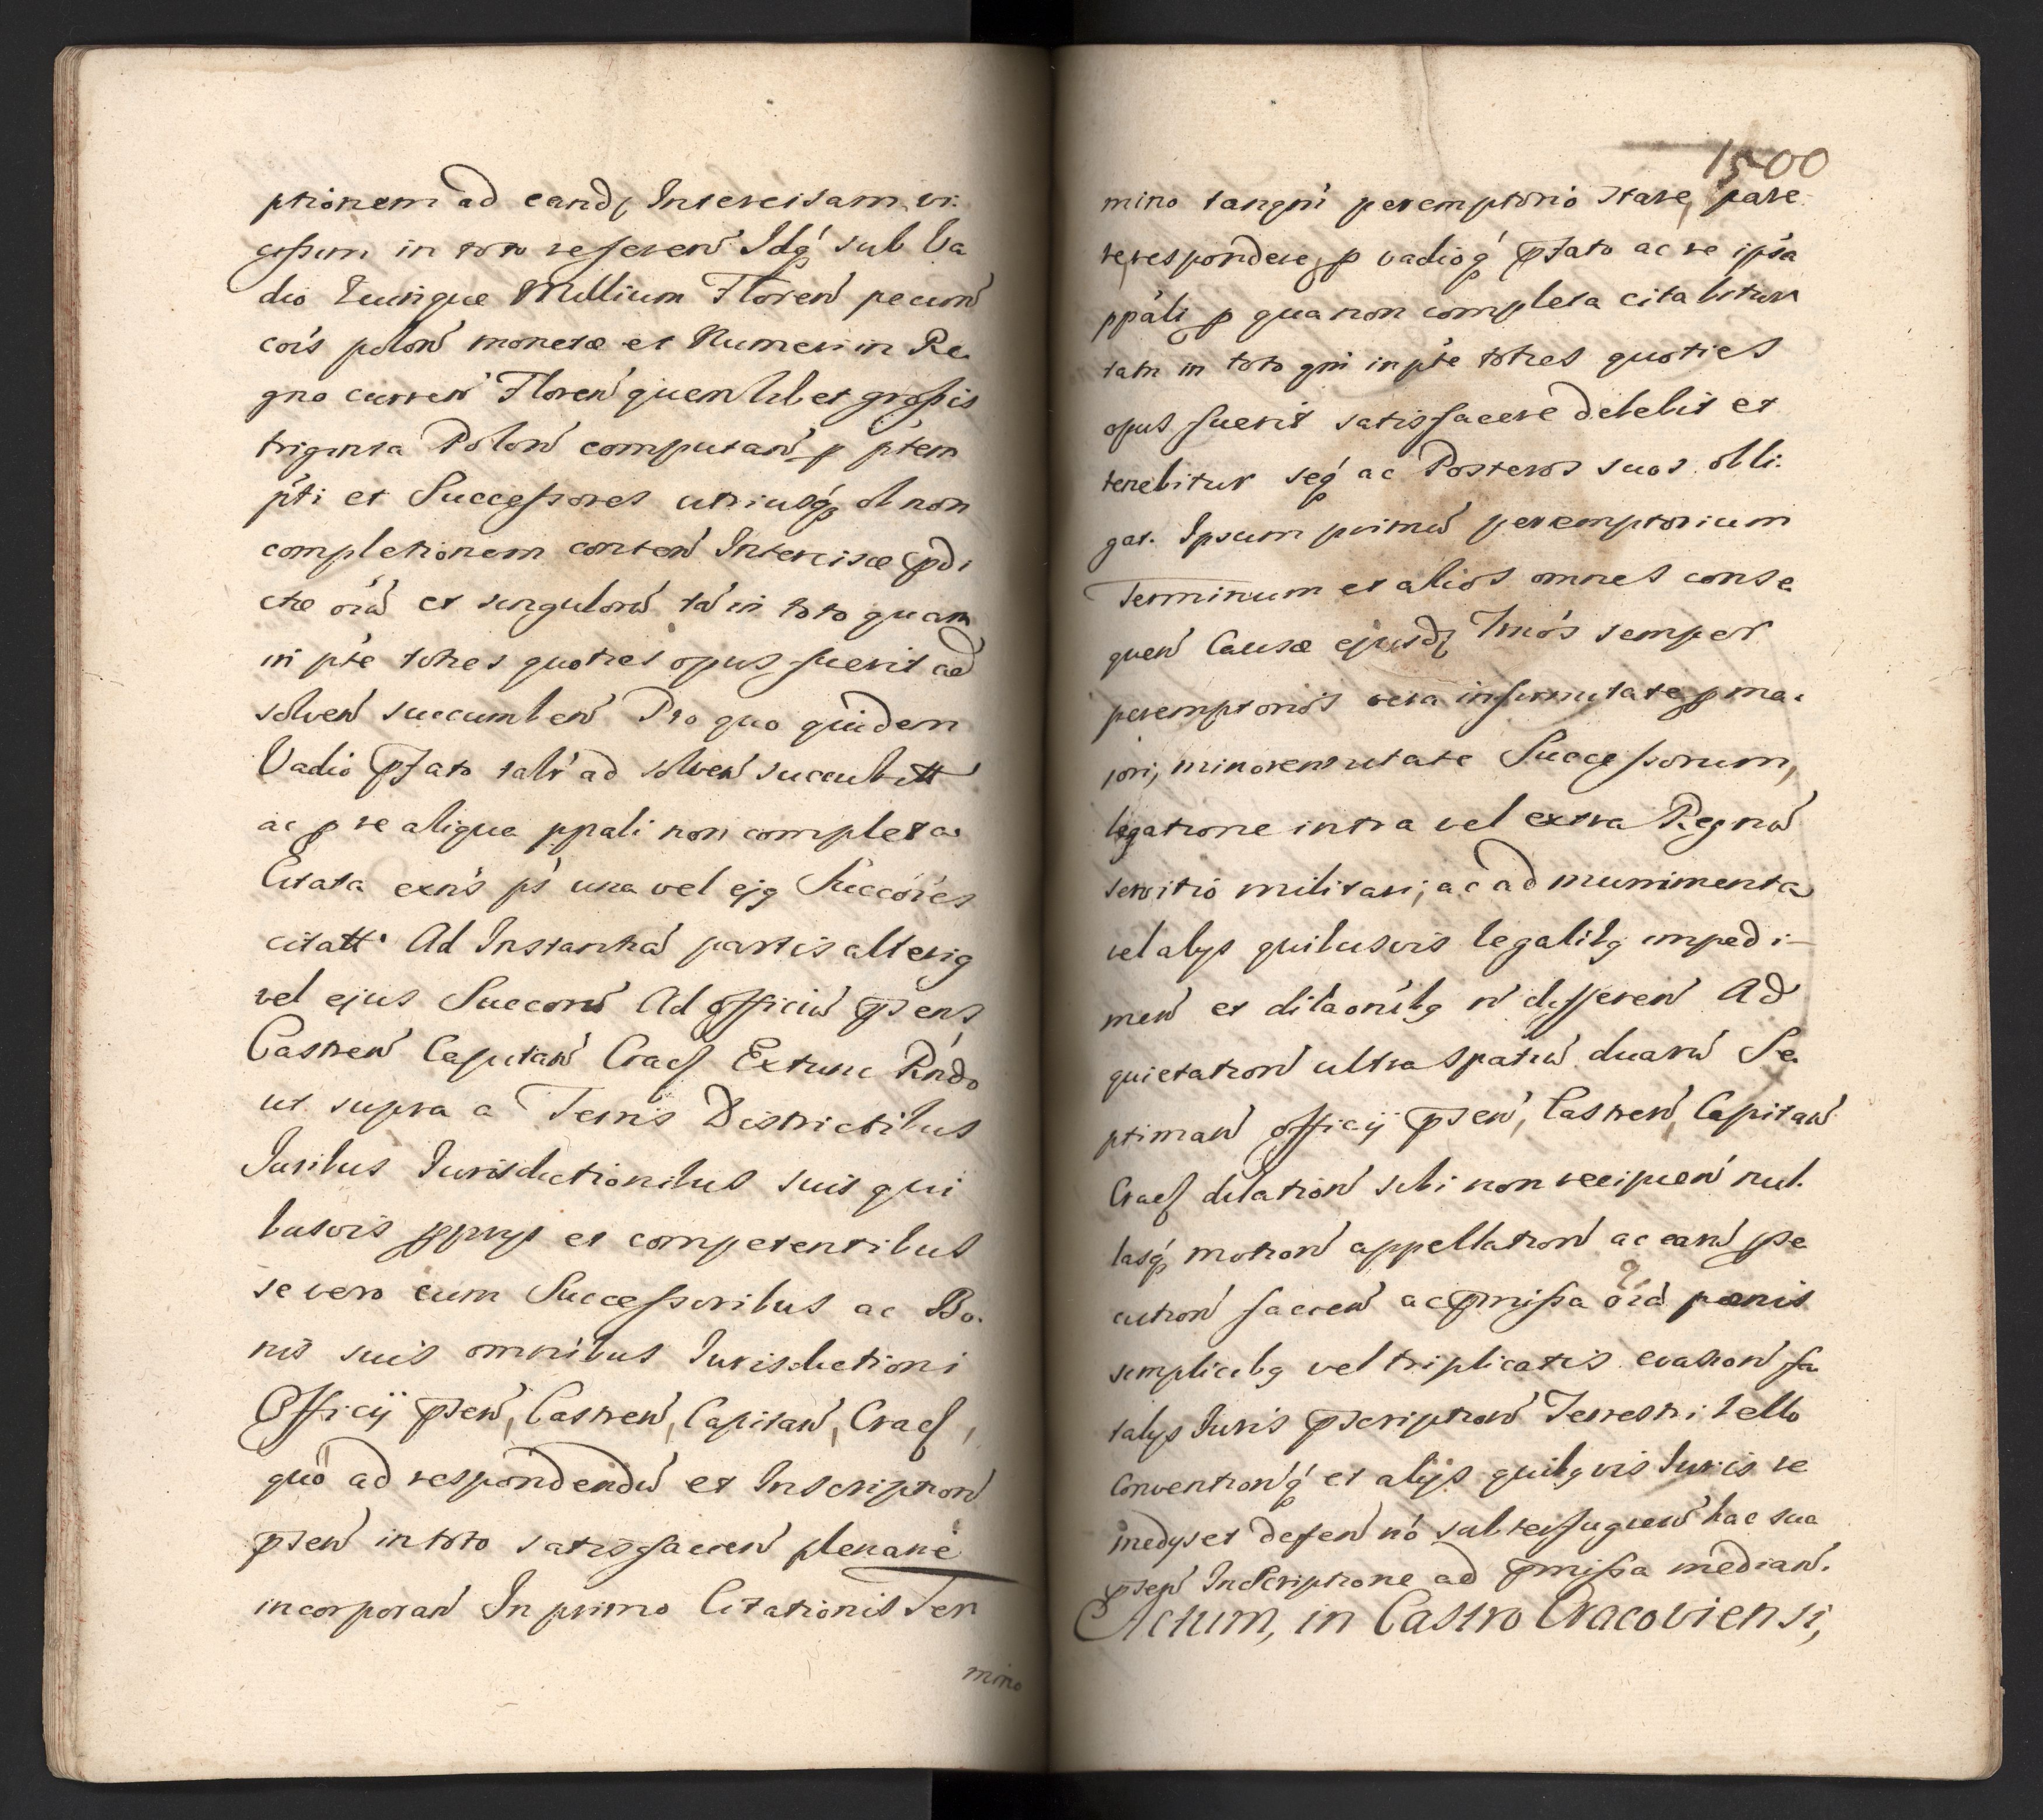 ptionem ad eand, Intercisam vi
cessim in toto referen Idq sub Va
dio Quinque Millium Floren pecun
cois polon monetæ et Numeri in Re
gno curren Floren quemlibet grossis
triginta Polon computan p ptem
pti et Successores utriusq ob non
completionem conten Intercisæ pdi
ctæ oiu et singuloru ta in toto quam
in pte toties quoties opus fuerit ad
solven succumben Pro quo quidem
Vadio pfato talr ad solven succubitt
ac p re aliqua ppali non completa
Citata exns ps una vel ejq Succores
citatt Ad Instantia partis alteriq
vel ejus Succoru Ad officiu psens
Castren Capitan Cracs Extunc Rndo
ut supra a Terris Districtibus
Juribus Jurisdictionibus suis qui
busvis pprys et competentibus
se vero cum Successoribus ac Bo.
nis suis omnibus Jurisdictioni
Officij psen, Castren, Capitan, Cracs,
quo ad respondendu et Inscription
psen in toto satisfacien plenarie
incorporan In primo Citationis Ter
mino
1500
mino tanqm peremptorio stare, pare
re, respondere, p vadioq pfato ac re ipsa
ppali p qua non completa citabitur
tam in toto qm in pte toties quoties
opus fuerit satisfacere debebit et
tenebitur seq ac Posteros suos obli.
gat. Ipsum primu peremptorium
Terminum et alios omnes conse
quen Causæ ejusd, Tnios semper
peremptorios vera infirmitate, p ma
jori, minorennitate Successorum,
legatione intra vel extra Regnu
servitio militari, ac ad munimenta
vel alys quibusvis legalibq impedi-
men et dilaonibq n differen Ad
quietation ultra spatiu duaru Se
ptiman officij psen, Castren, Capitan
Cracs dilation sibi non recipien nul
lasq motion appellation ac earu pse
cution facien ac pmissa oia pœnis
simplicibq vel triplicatis evasion fa
talys Juris pscription Terrestri bello
Conventionq et alijs quibqvis Juris re
medys et defen no subterfugien hac sua
psen Inscriptione ad pmissa median.
Actum, in Castro Cracoviensi,